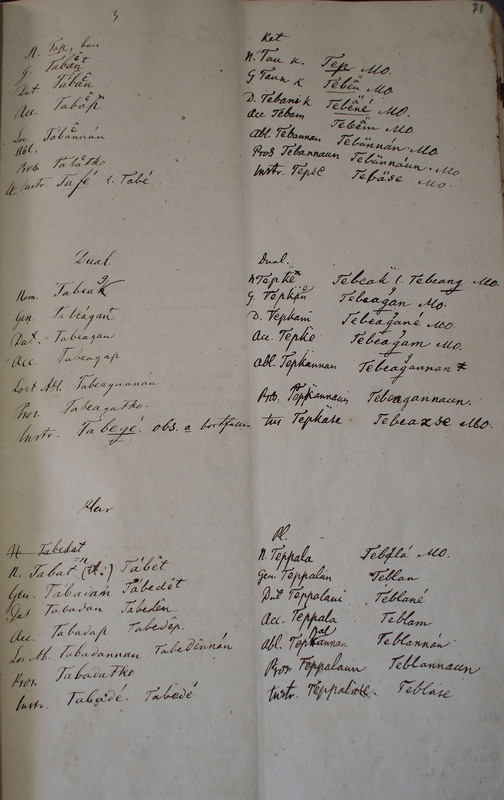 3
71
N. Tap, han
G. Tabăn
Dat Tabăn
Acc Tabăp
Loc Tăbănnán
Abl.
Pros Tabătko
Instr. Tafé l. Tăbé
Ket
N. Tau K. Tep MO.
G Taun K Teben MO
D. Tebani K Tebené MO.
Acc Tebam Tebem MO
Abl. Tebannan Tebännán MO
Pros Tebannaun Tebännáun MO
Instr. Tepse Tebäse MO.
Dual
Nom. Tabeak
Gen. Tabeágan
Dat. Tabeagan
Acc Tabeagap
Loc Abl. Tabeagannán
Pros. Tabeagatko.
Instr. Tabegé. obs. a bortfaller
Dual.
N Tepke Tebeak l. Tebeang MO.
G Tepkän Tebeagan MO.
D. Tepkani Tebeagané MO.
Acc. Tepke Tebeagam MO.
Abl. Tepkännan Tebeagannan
Pros. Tepkännaun Tebeagannaun.
Ins Tepkäse Tebeazse MO.
Plur
N Tabedat
N. Tabat Tábêt
Gen. Tabadan Tabedêt
Dat Tabadan Tabedên
Acc. Tabadap Tabedêp.
Loc Ab. Tabadannan Tabedênnán
Pros. Tabadatko
Instr. Tabadé. Tabedé
Pl.
N Teppala Teblá MO.
Gen. Teppalan Teblan
Dat Teppalani Teblané
Acc. Teppala Teblam
Abl. Teppalannan Teblannán
Pros Teppalaun Teblannaun
Instr. Teppaläse. Tebläse